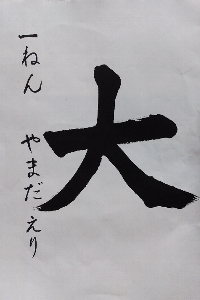 大
一ねん やまだえり